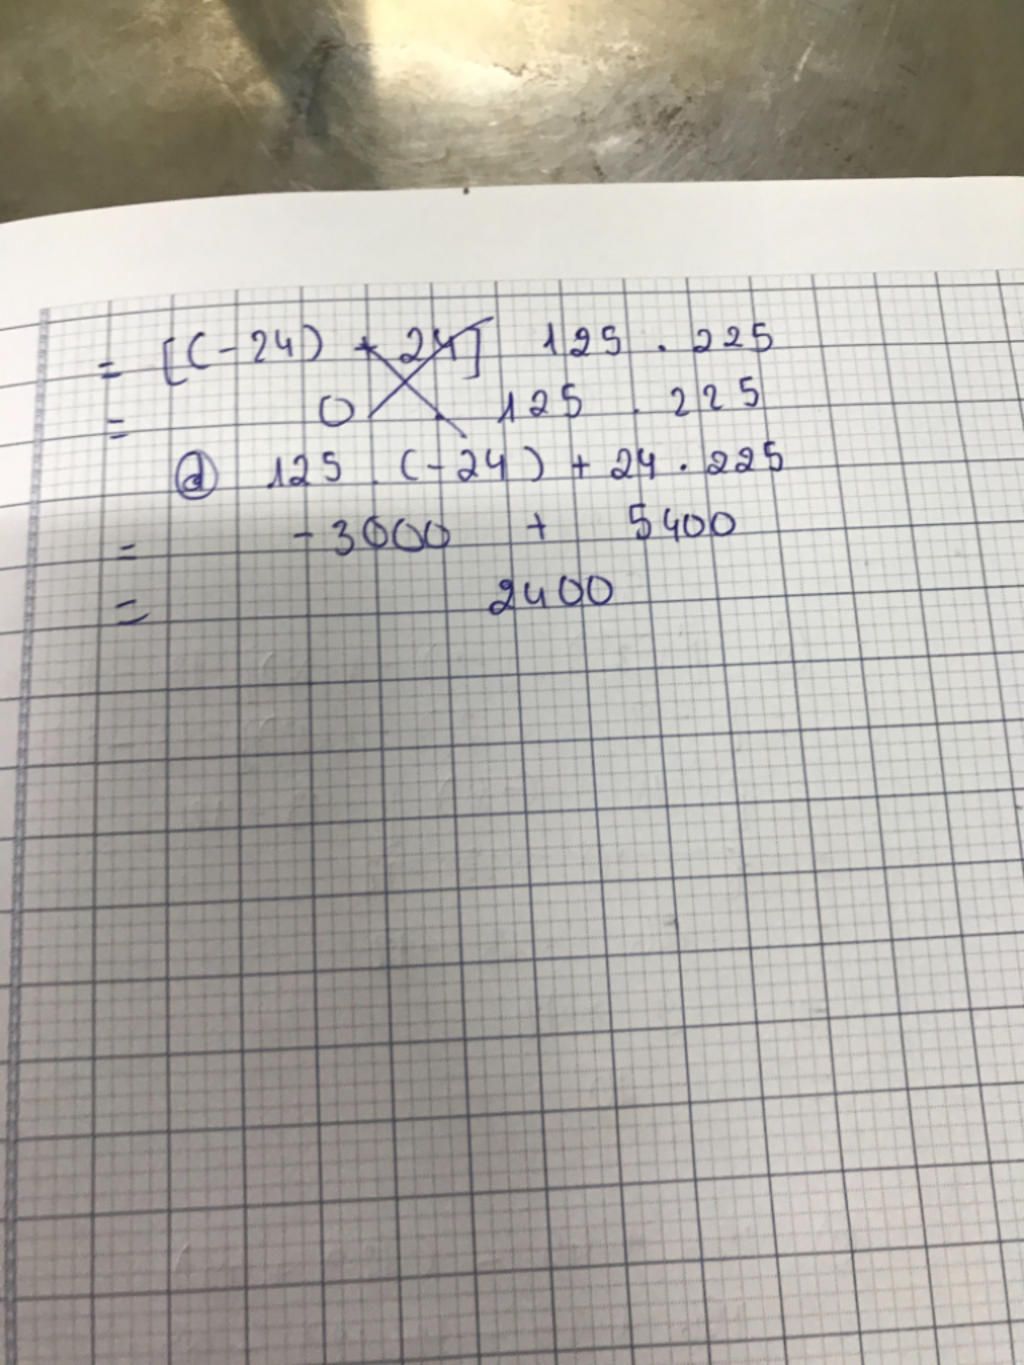 = [(-24) + 24] 125 . 225
= 0 . 125 . 225
d 125 . (-24) + 24 . 225
= -3000 + 5400
= 2400